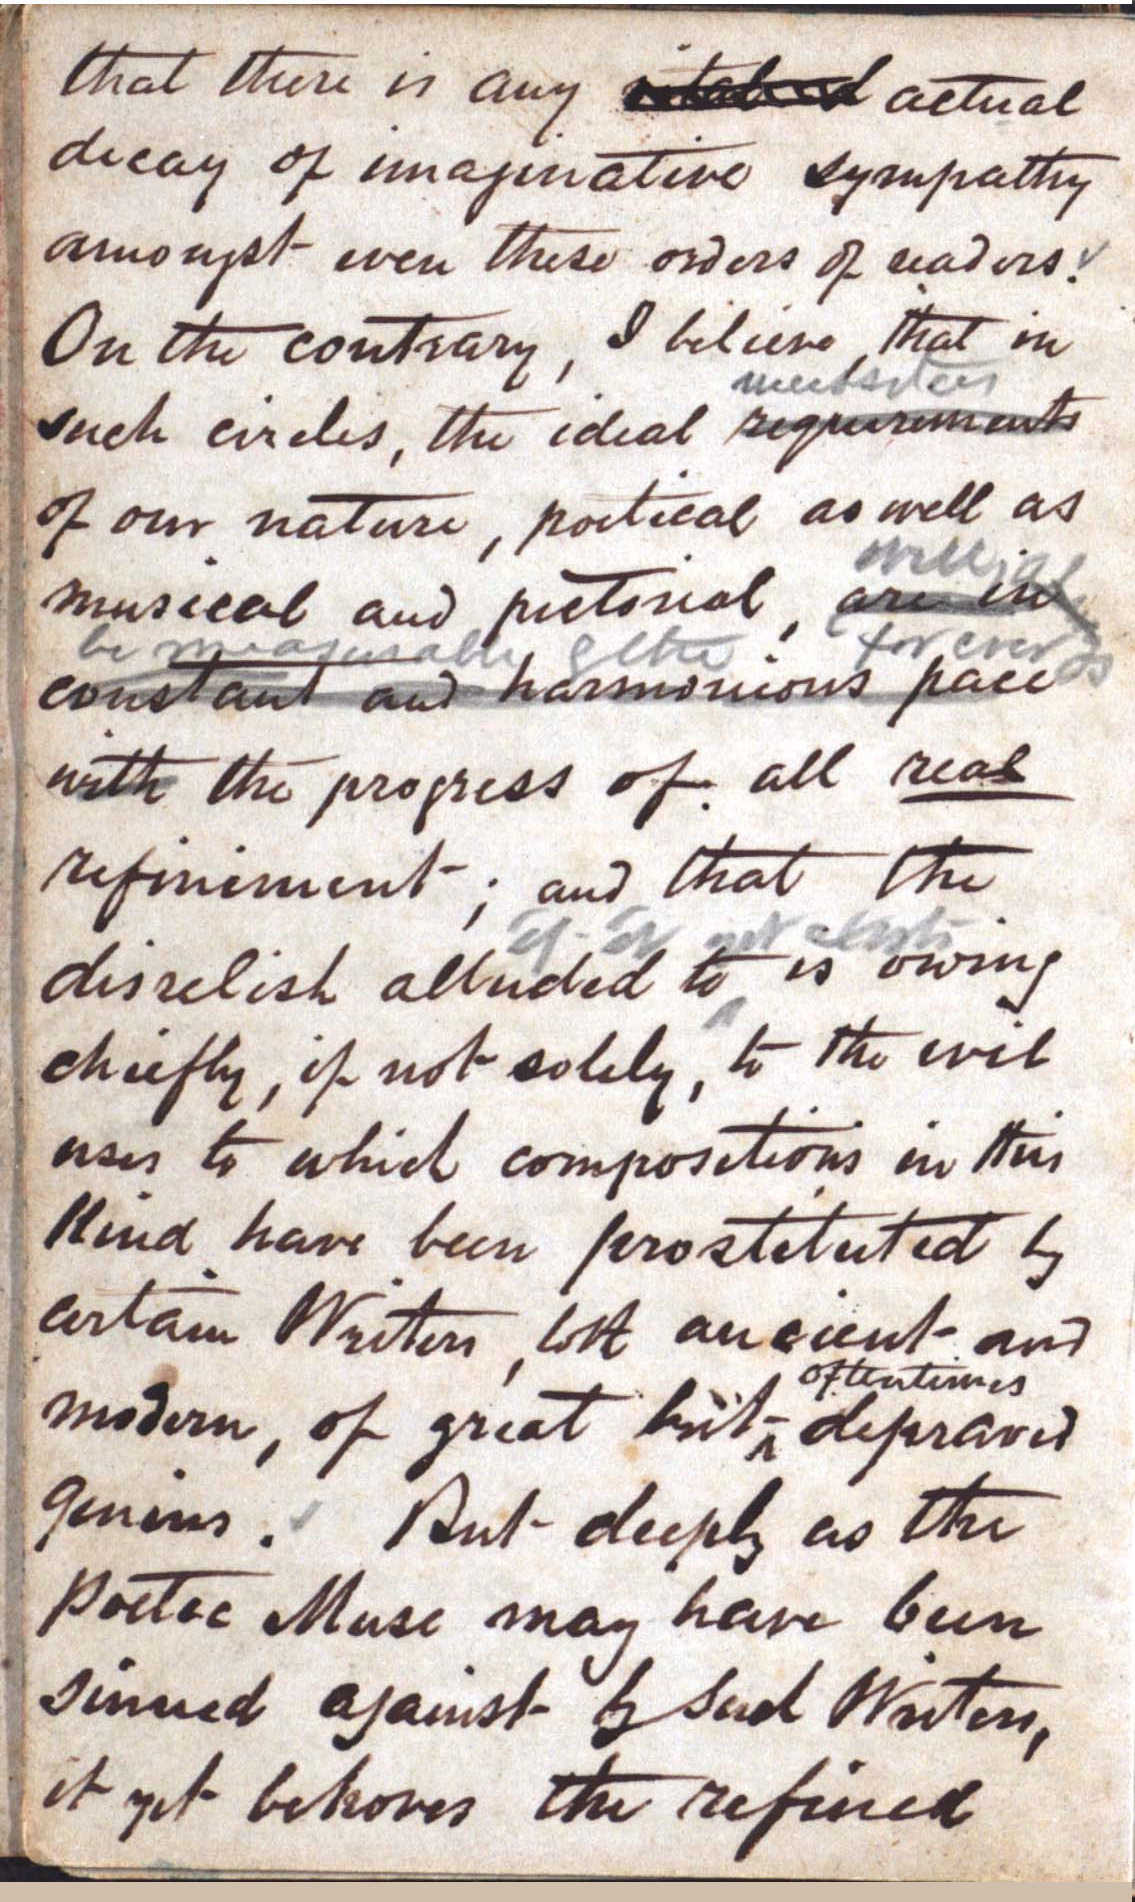 that there is any actual
decay of imaginative sympathy
amongst even these orders of readers.
On the contrary, I believe, that in
such circles, the ideal requirements
of our nature, poetical as well as
will
musical and pictorial, are in
be measurable for ever
constant and harmonious pace
with the progress of all real
refinement; and that the
if it yet exists
disrelish alluded to is owing
chiefly, if not solely, to the evil
uses to which compositions in this
Kind have been prostituted by
certain Writers, both ancient and
oftentimes
modern, of great but depraved
genius. But deeply as the
Poetic Muse may have been
sinned against by such Writers,
it yet behoves the refined